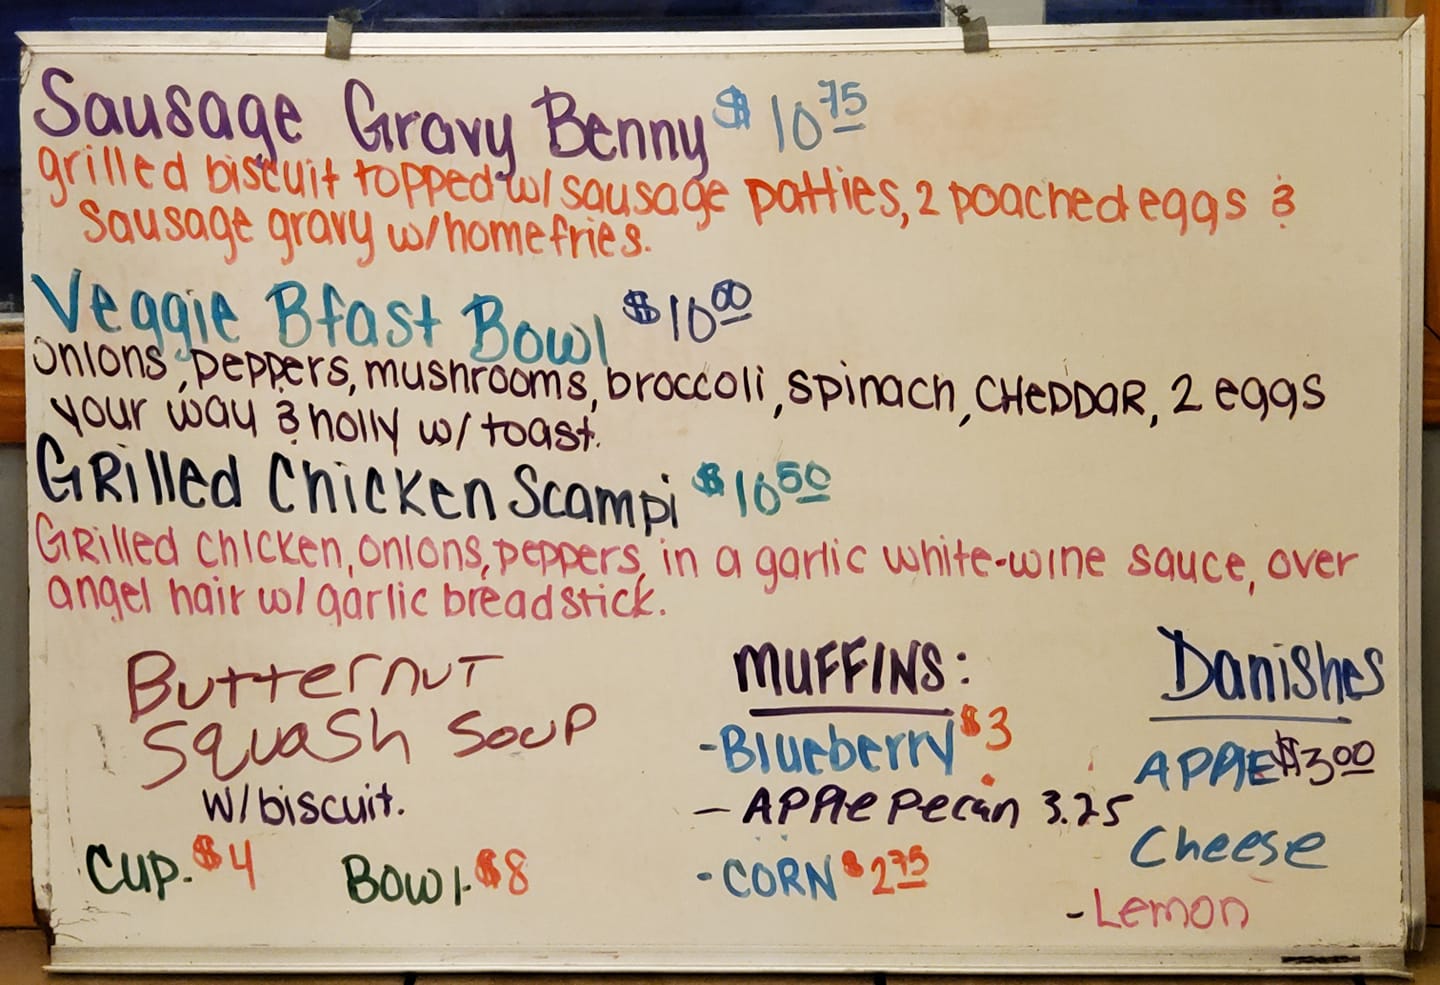 Sausage Gravy Benny $10 75
grilled biscuit topped w/ sausage patties, 2 poached eggs &
Sausage gravy w/ homefries.
Veggie Bfast Bowl $10 00
onions, peppers, mushrooms, broccoli, spinach, CHEDDAR, 2 eggs
your way & holly w/ toast.
GRilled Chicken Scampi $10 50
GRilled chicken, onions, peppers, in a garlic white-wine sauce, over
angel hair w/ garlic breadstick.
Butternut
Squash Soup
w/ biscuit.
Cup. $4 Bowl. $8
MUFFINS:
- Blueberry $3
- Apple Pecan 3.25
- CORN $2 75
Danishes
APPlE $3.00
Cheese
- Lemon